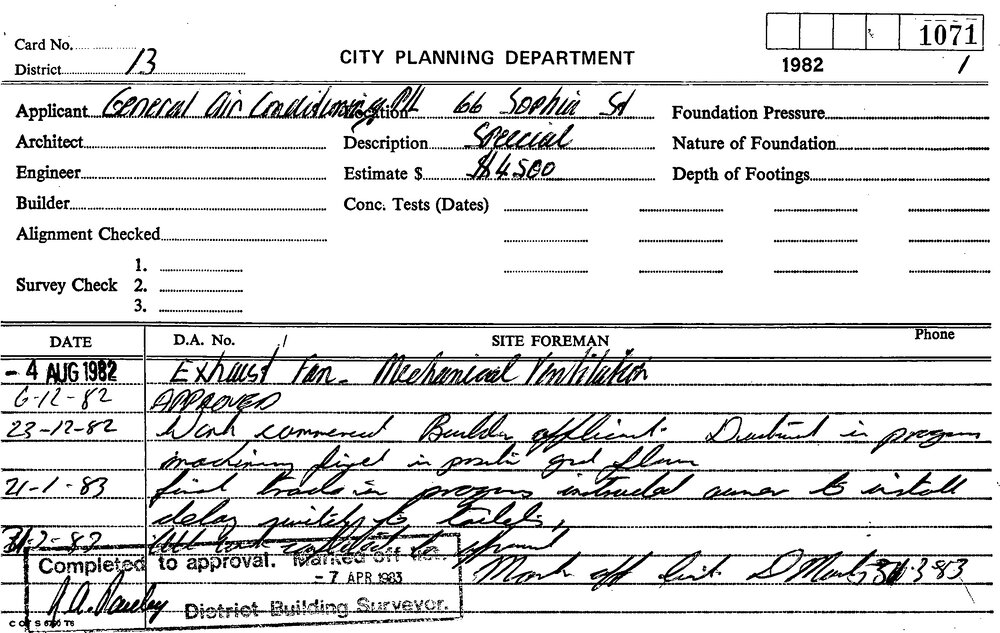 1071
Card No.
District 13
CITY PLANNING DEPARTMENT
1982 1
Applicant General Air Conditioning P/L Location 66 Sophia St Foundation Pressure
Architect Description Special Nature of Foundation
Engineer Estimate $ $4500 Depth of Footings
Builder Conc. Tests (Dates)
Alignment Checked
1.
Survey Check 2.
3.
DATE D.A. No. / SITE FOREMAN Phone
- 4 AUG 1982 Exhaust Fan - Mechanical Ventilation
6-12-82 APPROVED
23-12-82 Work commenced Builder applicant. Ductwork in progress
machinery fixed in position grd floor
21-1-83 final trades in progress instructed owner to install
delay switch to toilets,
Completed to approval. Marked off list.
Mark off list. 31.3.83
- 7 APR 1983
District Building Surveyor.